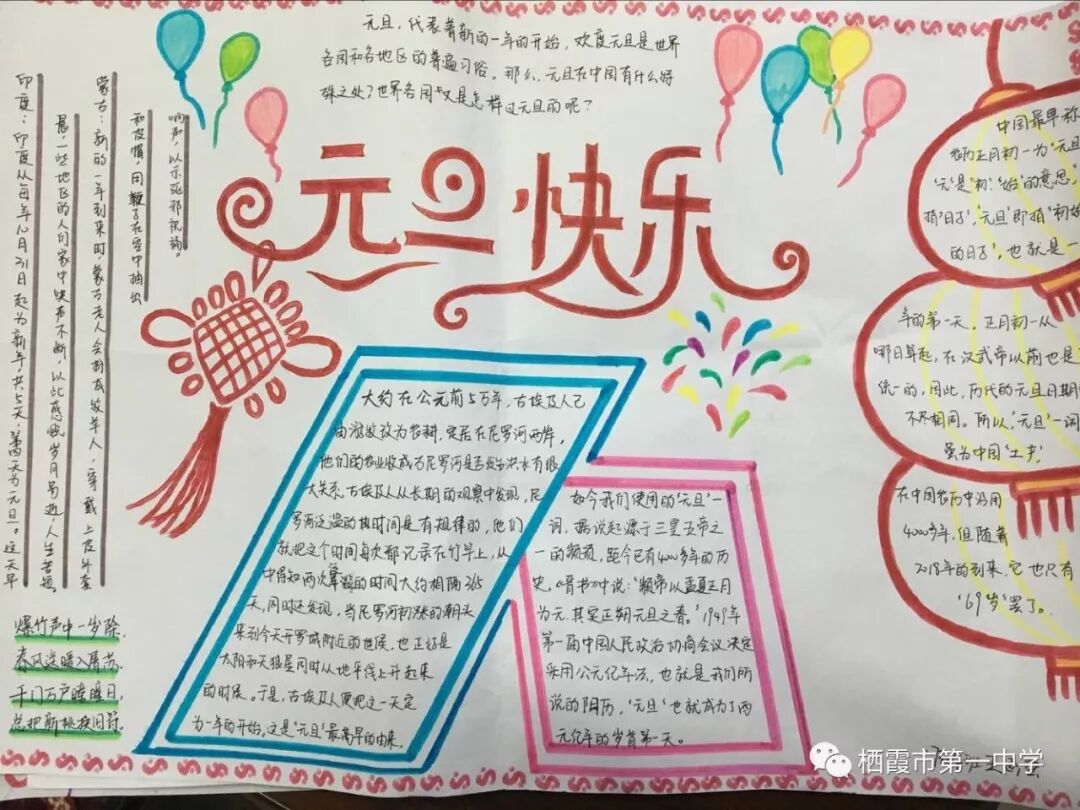 元旦，代表着新的一年的开始，欢度元旦是世界
各国和各地区的普遍习俗。那么，元旦在中国有什么特
殊之处？世界各国又是怎样过元旦的呢？
元旦快乐
响声，以示驱邪祝福。
和皮帽，用鞭子在空中抽出
蒙古：新的一年到来时，蒙古老人会扮成牧羊人，穿戴上皮外套
晨，一些地区的人们家中哭声不断，以此感慨岁月易逝，人生苦短
印度：印度从每年10月31日起为新年，共5天，第四天为元旦。这天早
爆竹声中一岁除，
春风送暖入屠苏。
千门万户曈曈日，
总把新桃换旧符。
大约在公元前5万年，古埃及人已
由游牧改为农耕，定居在尼罗河两岸，
他们的农业收成与尼罗河是否发生洪水有很
大关系。古埃及人从长期的观察中发现，尼
罗河泛滥的时间是有规律的，他们
就把这个时间每次都记录在竹竿上，从
中得知两次泛滥的时间大约相隔365
天，同时还发现，当尼罗河初涨的潮头
来到今天开罗城附近的时候，也正好是
太阳和天狼星同时从地平线上升起来
的时候。于是，古埃及人便把这一天定
为一年的开始，这是"元旦"最早的由来。
如今我们使用的"元旦"一
词，据说起源于三皇五帝之
一的颛顼，距今已有4000多年的历
史。《晋书》中说："颛帝以孟夏正月
为元，其实正朔元旦之春。"1949年
第一届中国人民政治协商会议决定
采用公元纪年法，也就是我们所
说的阳历，"元旦"也就成为了西
元纪年的岁首第一天。
中国最早称
农历正月初一为"元旦
"元"是"初""始"的意思，
指"日子"，"元旦"即指"初始
的日子"，也就是一
年的第一天，正月初一从
哪日算起，在汉武帝以前也是
统一的，因此，历代的元旦日期
不尽相同。所以，"元旦"一词
虽为中国"土产"
在中国农历中沿用
4000多年，但随着
2018年的到来，它也只有
"69岁"罢了。
栖霞市第一中学